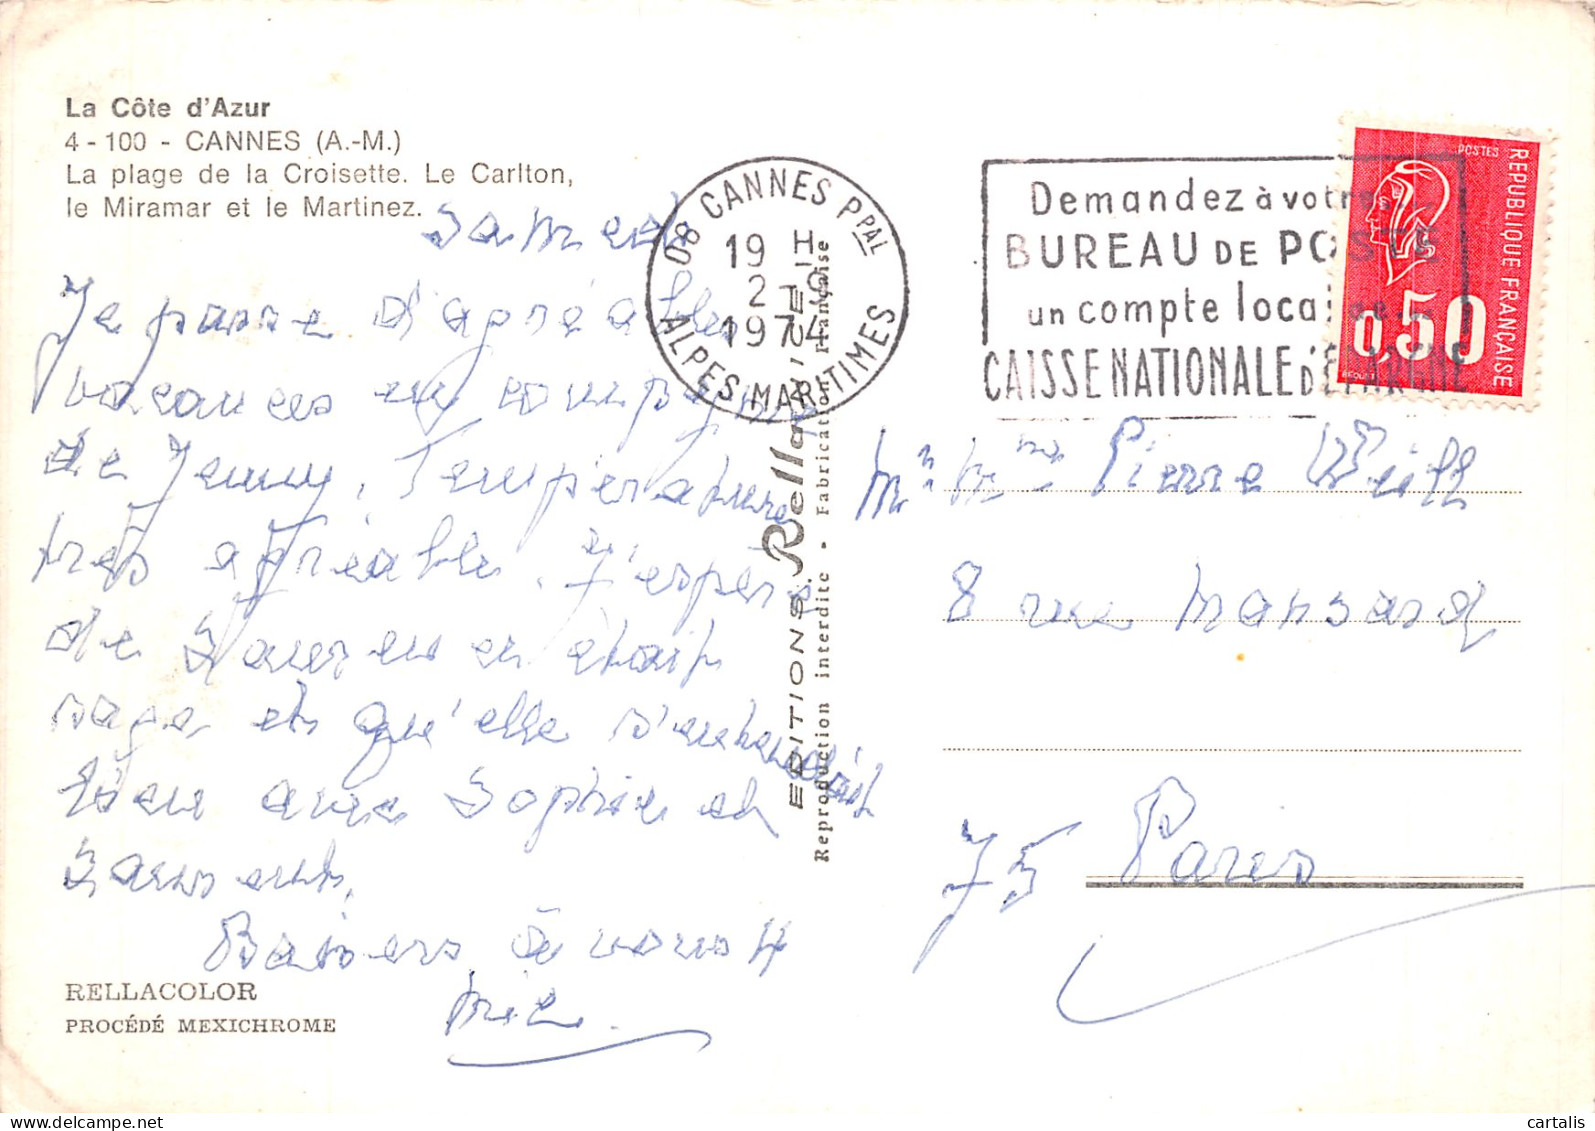 La Côte d'Azur
4 - 100 - CANNES (A.-M.)
La plage de la Croisette. Le Carlton,
le Miramar et le Martinez.
Samedi
Je passe d'agréables
vacances en compagnie
de Jenny. Température
très agréable. J'espère
de Laurence était
sage et qu'elle s'entendait
bien avec Sophie et
Laurent.
Baisers à vous 4
RELLACOLOR
PROCÉDÉ MEXICHROME
08 CANNES PPAL
19 H
2 - 9
1974
ALPES MARITIMES
EDITIONS Rella NICE
Reproduction interdite • Fabrication Française
Demandez à votre
BUREAU DE POSTE
un compte local de
CAISSE NATIONALE D'ÉPARGNE
POSTES
REPUBLIQUE FRANÇAISE
0,50
BEQUET
Mr Mme Pierre Weill
8 rue Mansard
75 Paris
cartalis
delcampe.net